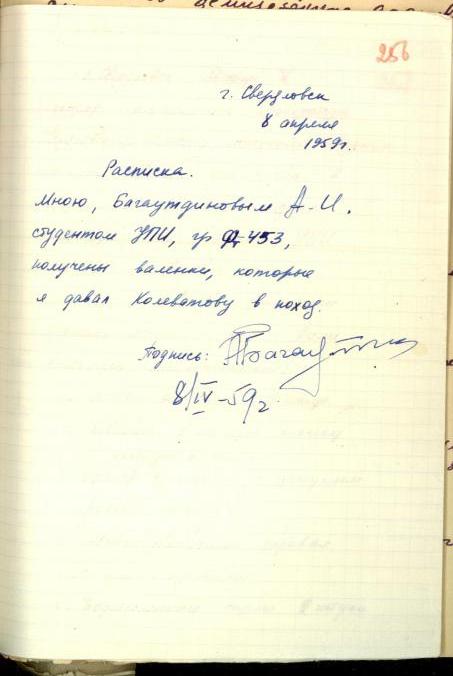 256
г. Свердловск
8 апреля
1959г.
Расписка.
Мною, Багаутдиновым А-И.
студентом УПИ, гр Фт-453,
получены валенки, которые
я давал Колеватову в поход.
Подпись:
8/IV-59г